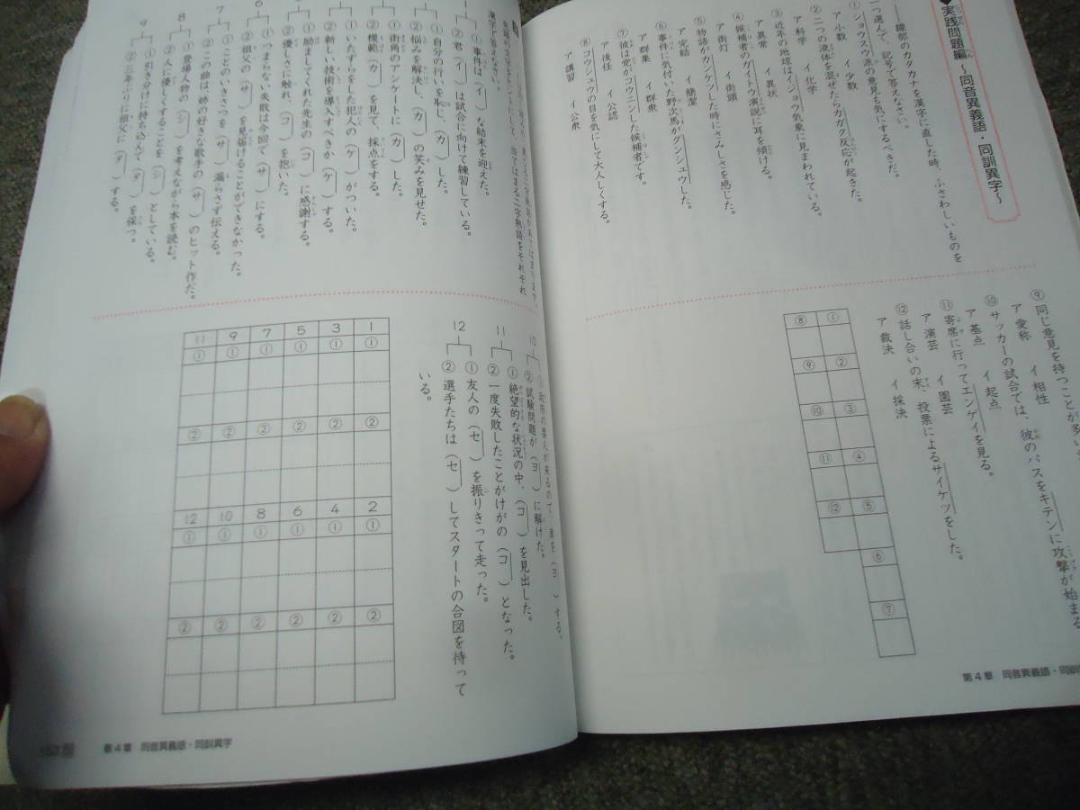 実践問題編 ～同音異義語・同訓異字～
線部のカタカナを漢字に直した時、ふさわしいものを
二つ選んで、記号で答えなさい。
① ショウスウ派の意見も大切にするべきだ。
ア 小数 イ 少数
② 二つの液体を混ぜたらカガク反応が起きた。
ア 科学 イ 化学
③ 近年の地球はイジョウ気象に見まわれている。
ア 異常 イ 異状
④ 候補者のガイトウ演説に耳を傾ける。
ア 街灯 イ 街頭
⑤ 物語がカンケツした時にさみしさを感じた。
ア 完結 イ 簡潔
⑥ 事件に気付いた野次馬がグンシュウした。
ア 群集 イ 群衆
⑦ 彼は党がコウニンした候補者です。
ア 後任 イ 公認
⑧ コウシュウの目を気にして大人しくする。
ア 講習 イ 公衆
⑨ 同じ意見を持つことが多い
ア 愛称 イ 相性
⑩ サッカーの試合では、彼のパスをキテンに攻撃が始まる
ア 基点 イ 起点
⑪ 寄席に行ってエンゲイを見る。
ア 演芸 イ 園芸
⑫ 話し合いの末、投票によるサイケツをした。
ア 裁決 イ 採決
① ② ③ ④ ⑤ ⑥ ⑦
⑧ ⑨ ⑩ ⑪ ⑫
第4章 同音異義語・同訓
漢字で答えなさい。
① 事件は（イ ）な結末を迎えた。
② 君（イ ）は試合に向けて練習している。
① 自分の行いを恥じ、（カ ）した。
② 悩みが解決し、（カ ）の笑みを見せた。
① 街角のアンケートに（カ ）した。
② 模範（カ ）を見て、採点をする。
① いたずらをした犯人の（ケ ）がついた。
② 新しい技術を導入すべきか（ケ ）する。
① 励ましてくれた先生の（コ ）に感謝する。
② 優しさに触れ、（コ ）を抱いた。
6
① つまらない失敗は今回で（サ ）にする。
② 祖父の（サ ）を見届けることができなかった。
7
① ことのいきさつを（サ ）漏らさず伝える。
② この曲は、姉の好きな歌手の（サ ）のヒット作だ。
8
① 登場人物の（シ ）を考えながら本を読む。
② 人に優しくすることを（シ ）としている。
9
① 引き分けに持ち込んで（タ ）を保つ。
② 三年ぶりに祖父に（タ ）する。
10
② 試験問題が（ヨ ）に解けた。
11
① 絶望的な状況の中、（コ ）を見出した。
② 一度失敗したことがけがの（コ ）となった。
12
① 友人の（セ ）を振りきって走った。
② 選手たちは（セ ）してスタートの合図を待って
いる。
1 ① ② 2 ① ②
3 ① ② 4 ① ②
5 ① ② 6 ① ②
7 ① ② 8 ① ②
9 ① ② 10 ① ②
11 ① ② 12 ① ②
第4章 同音異義語・同訓異字